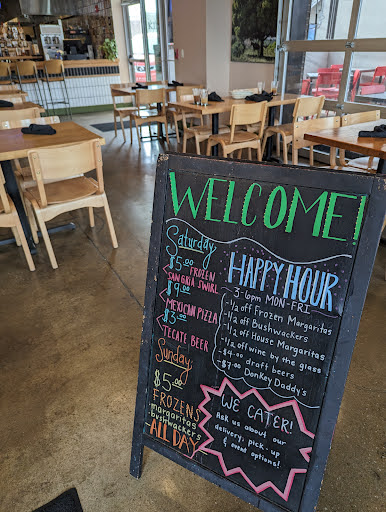 WELCOME!
Saturday
$5.00 FROZEN
SANGRIA SWIRL
$9.00
MEXICAN PIZZA
$3.00
TECATE BEER
Sunday
$5.00
FROZENS
margaritas
bushwackers
ALL DAY
HAPPY HOUR
3-6pm MON-FRI
-1/2 off Frozen Margaritas
-1/2 off Bushwackers
-1/2 off House Margaritas
-1/2 off wine by the glass
-$4.00 draft beers
-$7.00 Donkey Daddy's
WE CATER!
Ask us about our
delivery, pick-up
& event options!